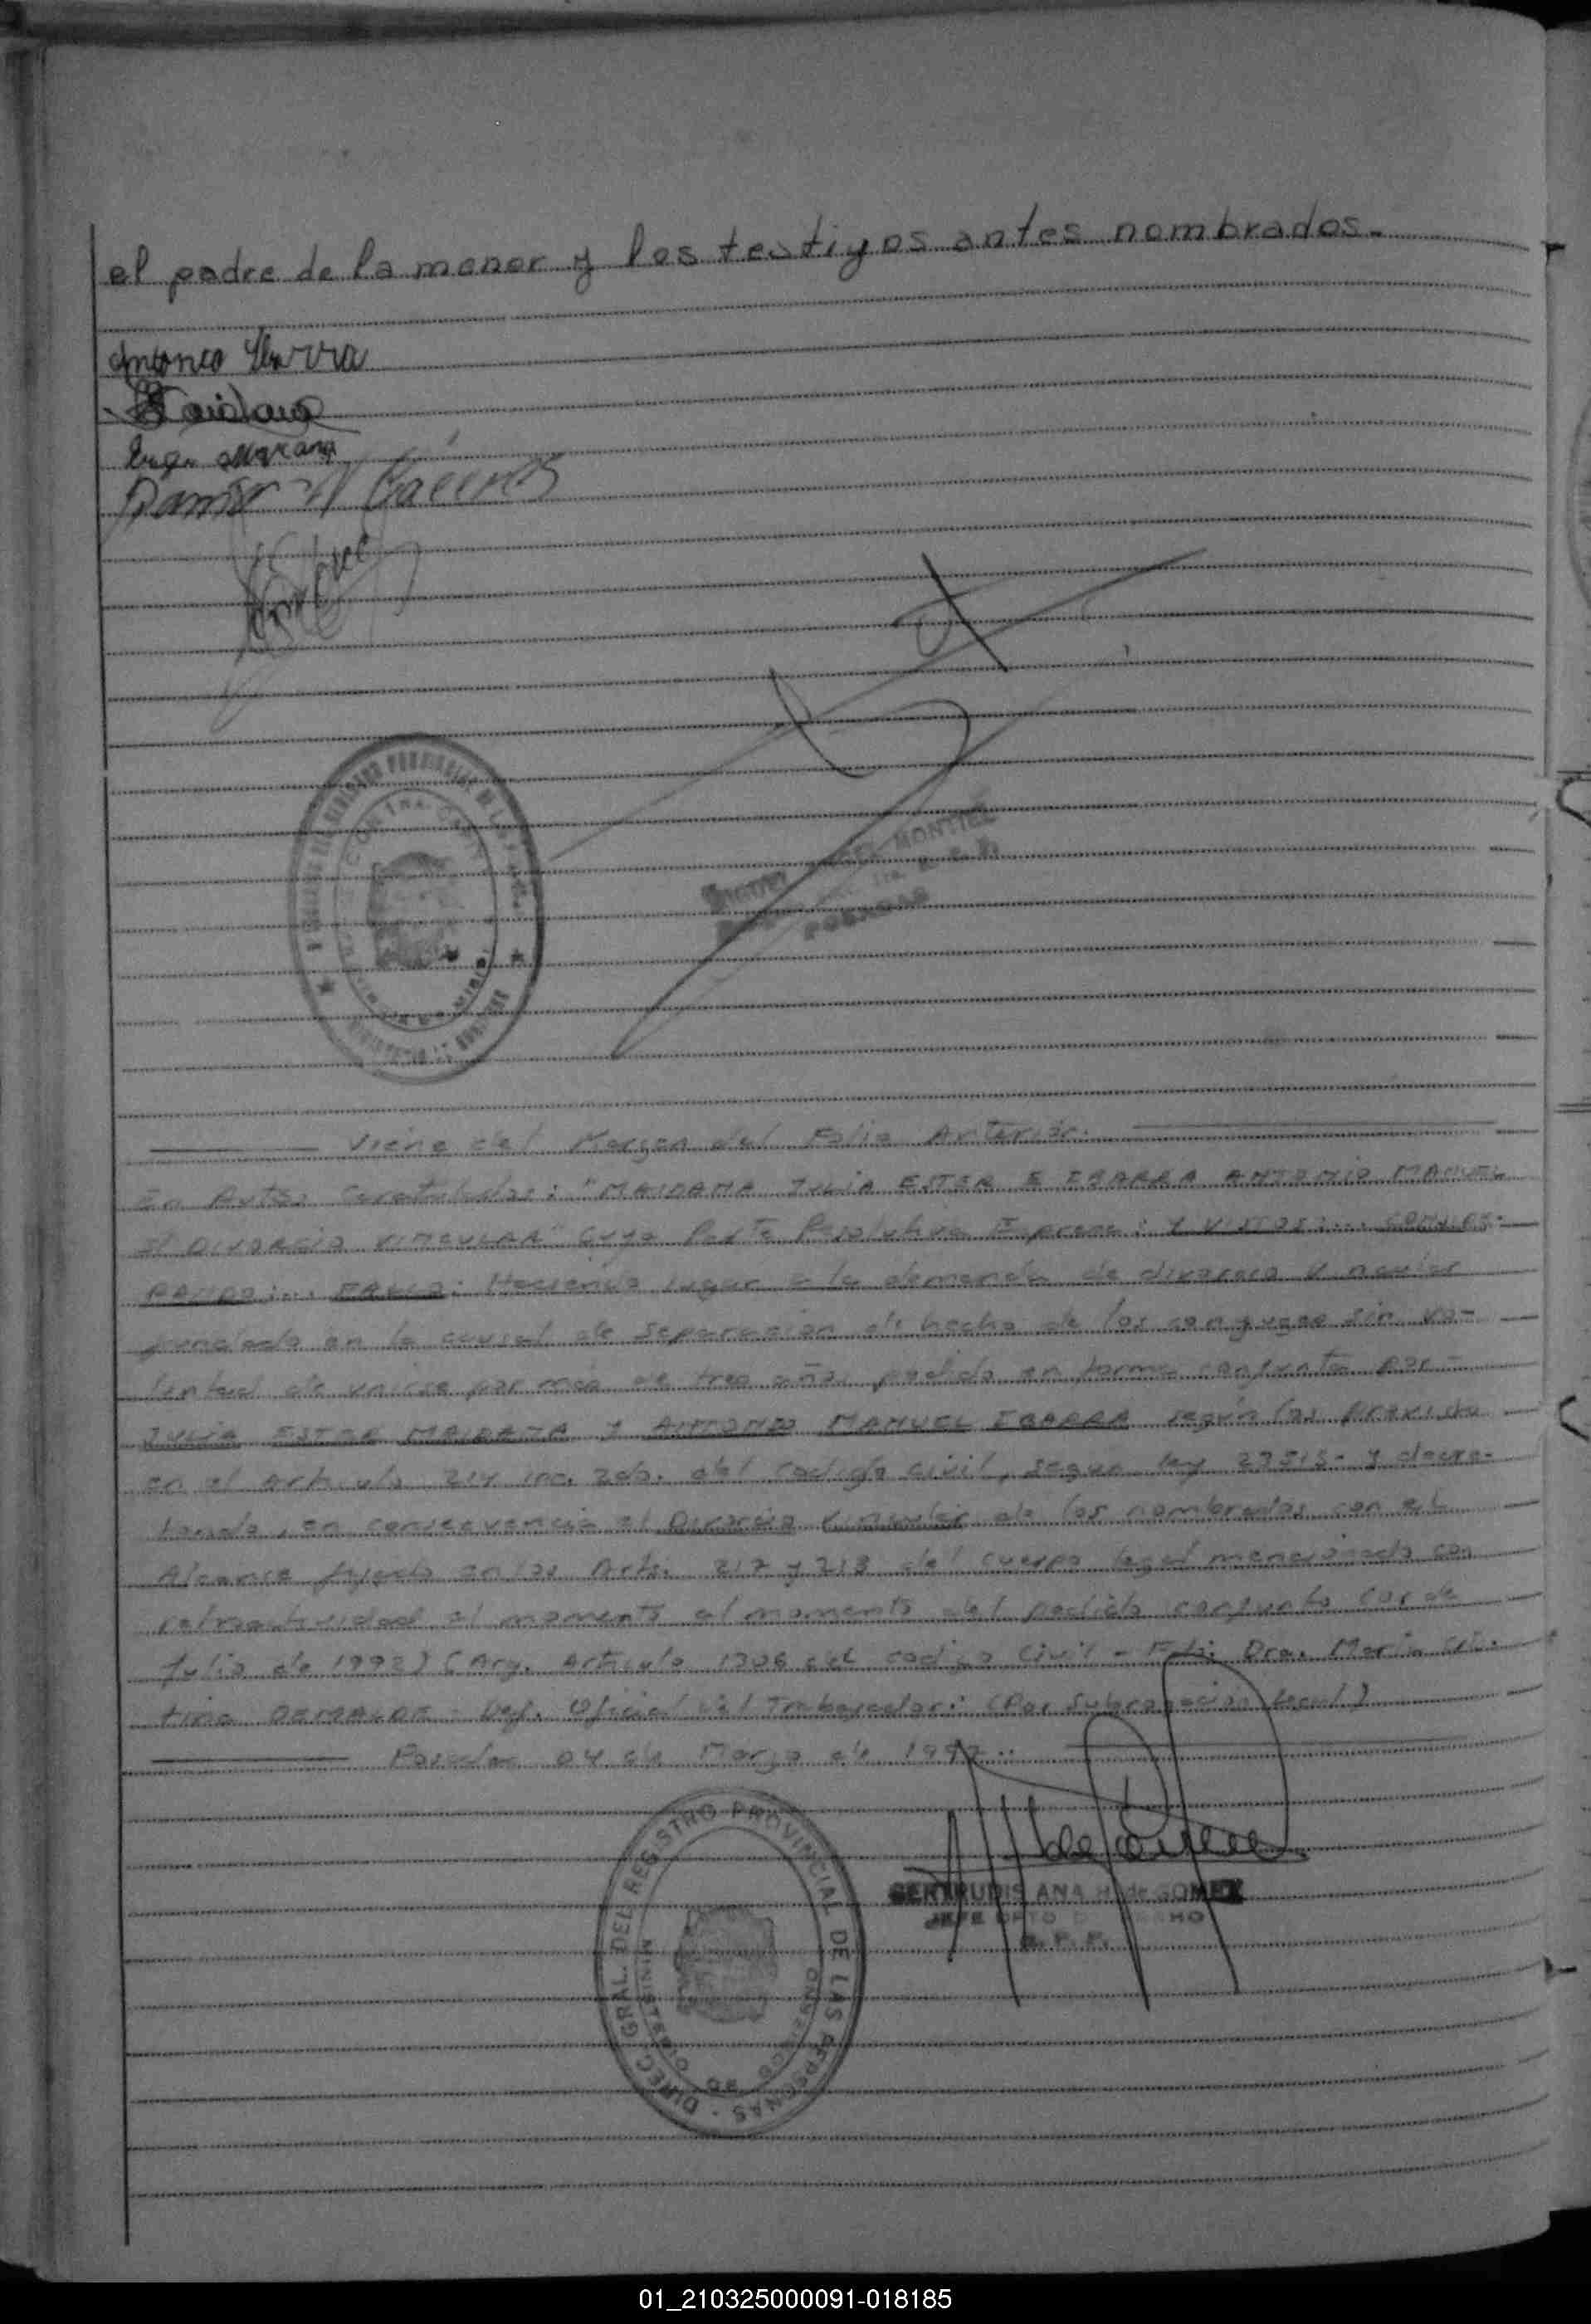 el padre de la menor y los testigos antes nombrados.-
Antonio Ibarra
MONTIEL
POSADAS
Viene del Margen del Folio Anterior.
En Autos Caratulados: "MAIDANA JULIA ESTER E IBARRA ANTONIO MANUEL
S/ DIVORCIO VINCULAR" Cuya Parte Resolutiva Expresa: Y VISTOS:... CONSIDE-
RANDO:... FALLO: Haciendo lugar a la demanda de divorcio vincular
fundada en la causal de separación de hecho de los conyuges sin vo-
luntad de unirse por más de tres años pedida en forma conjunta por-
JULIA ESTER MAIDANA Y ANTONIO MANUEL IBARRA según lo previsto
en el Articulo 214 inc. 2do. del codigo civil, segun ley 23515- y decre-
tando, en consecuencia el Divorcio Vincular de los nombrados con el
Alcance fijado en los Arts. 217 y 218 del cuerpo legal mencionado con
retroactividad al momento al momento del pedido conjunto
Julio de 1992) (Arg. Articulo 1306 del codigo Civil - Fdo: Dra. María Cris-
tina Def. Oficial del Trabajador: (Por Subrogación Legal)
Posadas 04 de Marzo de 1997..
GERTRUDIS ANA H. de GOMEZ
JEFE DPTO
R. P. P.
DIREC. GRAL. DEL REGISTRO PROVINCIAL DE LAS PERSONAS
MINISTERIO DE GOBIERNO
01_210325000091-018185